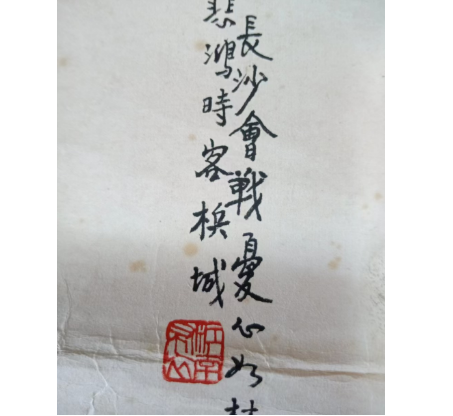 長沙會戦憂心如
悲鴻時客梹城